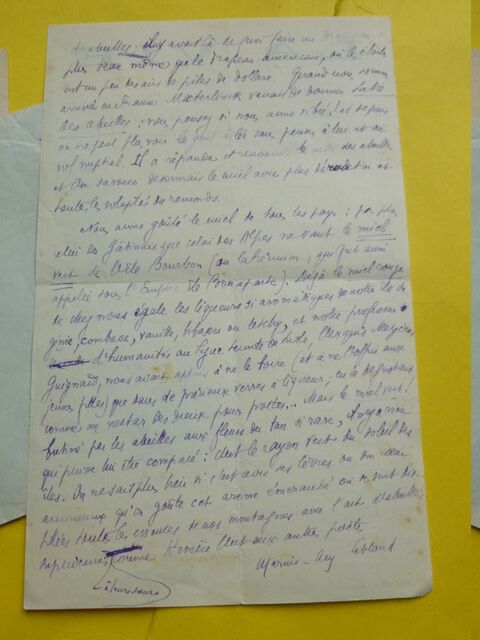 d'abeilles. Il y avait là de quoi faire un drapeau
plus beau même que le drapeau américain, où le étoiles
ont un peu des airs de pièces de dollars. Quand nous sommes
arrivés en France Maeterlinck venait de donner La Vie
des abeilles, vous pensez si nous avons vibré! et depuis
on ne peut plus voir le sans penser à lui et au
vol nuptial. Il a répandu et le des abeilles,
et on savoure désormais le miel avec plus de et
toute les voluptés du remords.
Nous avons goûté le miel de tous les pays : pas plus
celui du Gâtinais que celui des Alpes ne vaut le miel
vert de l'île Bourbon (ou la Réunion, qui fut aussi
appelée sous l'Empire île Bonaparte). Déjà le miel rouge
de chez nous égale les liqueurs si aromatiques de notre île de
génie, combava, vanille, bibasse ou letchy, et notre professeur
d'humanités au Lycée Leconte de Lisle,
Guignard, nous avait appris à ne le boire (et à ne l'offrir aux
jeunes filles) que dans de précieux verres à liqueur, en le dégustant
comme un nectar des dieux pour poètes... Mais le miel vert!
butiné par les abeilles aux fleurs du tan si rare,
qui peuve lui être comparé : c'est le rayon vert du soleil des
îles. On ne sait plus bien si c'est avec ses lèvres ou son cœur
amoureux qu'on goûte cet arome émeraudé où se sont
toutes les de nos montagnes avec l'art d'abeilles
supérieures comme Homère l'est aux autres poètes
Marius-Ary Leblond